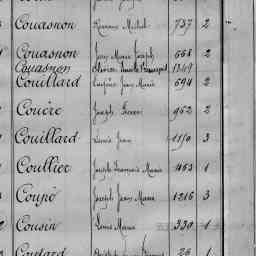 Couasnon Michel 737 2
Couasnon Jean Marie Joseph 668 2
Couasnon 1349
Couillard Eugène Jean Marie 694 2
Couëre Joseph Pierre 962 2
Couillard Louis Jean 1150 3
Coullier Joseph François Marie 463 1
Coupé Joseph Jean Marie 1216 3
Cousin Louis Marie 330 1
Coutard 26 1